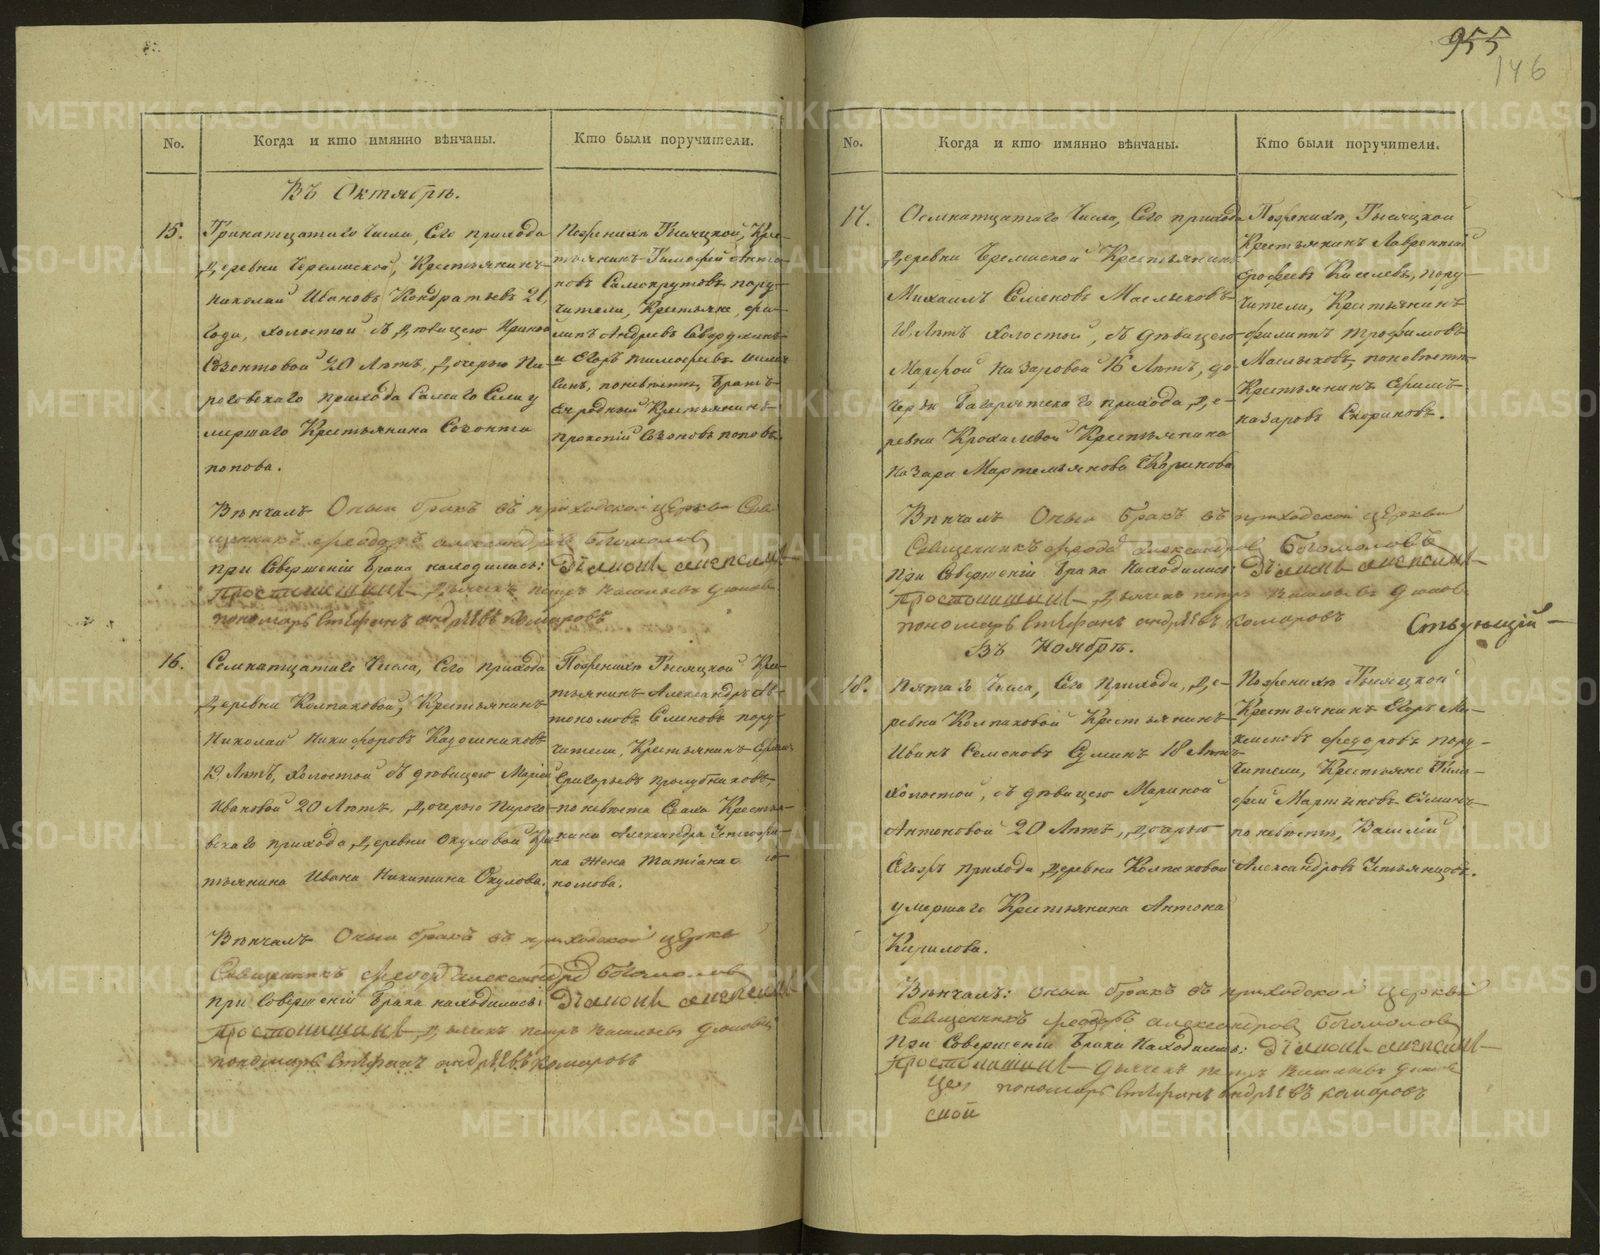 955
146
No.
Когда и кто имянно вѣнчаны.
Кто были поручители.
Въ Октябрѣ.
15.
Тринатцатаго Числа, Сего прихода
деревни Черемиской, Крестьянинъ
Николай Ивановъ Кондратьевъ 21
года, холостой съ дѣвицею Ириною
Созонтовой 20 Лѣтъ, дочерью Пи-
роговскаго прихода Самаго Села у
мершаго Крестьянина Созонта
попова.
По женихѣ Тысяцкой, Кре-
стьянинъ Тимофей Анто-
новъ Самокрутовъ, пору-
чители, Крестьяне, фи-
липъ Андреевъ
и Егоръ тимофеевъ
по невѣстѣ, Братъ
Сродный Крестьянинъ
прокопий Созоновъ поповъ.
Вѣнчалъ Оный бракъ въ приходской церкви Свя
щенникъ феодоръ александровъ богомоловъ
при Совершеніи Брака находились: Діаконъ алексѣй
простопишинъ дьячекъ петръ васильевъ
пономарь Стефанъ андреевъ комаровъ
16.
Семнатцатаго Числа, Сего прихода
деревни Колпаковой, Крестьянинъ
Николай Никифоровъ Калошниковъ
19 Лѣтъ, холостой съ дѣвицею Маріей
Ивановой 20 Лѣтъ, дочерью Пирого-
вскаго прихода, деревни Окуловой Кре
стьянина Ивана Никитина Окулова.
По женихѣ Тысяцкой Кре-
стьянинъ Александръ Ар-
тономовъ Семеновъ пору-
чители, Крестьянинъ Ефимъ
Григорьевъ Голубниковъ,
по невѣстѣ Села Крестья-
нина Александра
на жена татіана
Вѣнчалъ Оный бракъ въ приходской церкви
Священникъ феодоръ александровъ богомоловъ
при Совершеніи Брака находились: Діаконъ алексѣй
простопишинъ дьячекъ петръ васильевъ
пономарь Стефанъ андреевъ комаровъ
No.
Когда и кто имянно вѣнчаны.
Кто были поручители.
17.
Осмнатцатаго Числа, Сего прихода
деревни Черемиской Крестьянинъ
Михаилъ Семеновъ Маслыковъ
18 Лѣтъ холостой, съ дѣвицею
Марфой Назаровой 16 Лѣтъ, до
черью Багарятскаго прихода, де-
ревни Крохалевой Крестьянина
Назара Мартемьянова Скорикова
По женихѣ, Тысяцкой
Крестьянинъ Лаврентий
Ерофеевъ Киселевъ, пору-
чители, Крестьянинъ
филипъ трофимовъ
Маслыковъ, по невѣстѣ
Крестьянинъ Ефимъ
назаровъ Скориковъ.
Вѣнчалъ Оный бракъ въ приходской церкви
Священникъ феодоръ александровъ богомоловъ
При Совершеніи Брака Находились: Діаконъ алексѣй
Простопишинъ дьячекъ петръ васильевъ
пономарь Стефанъ андреевъ комаровъ
Стьдующій
Въ Ноябрѣ.
18.
Пятаго Числа, Сего Прихода, де-
ревни Колпаковой Крестьянинъ
Иванъ Семеновъ Суминъ 18 Лѣтъ
холостой, съ дѣвицею Мариной
Антоновой 20 Лѣтъ, дочерью
Сегожъ прихода, деревни Колпаковой
умершаго Крестьянина Антона
Кирилова.
По женихѣ Тысяцкой
Крестьянинъ Егоръ
федоровъ пору-
чители, Крестьяне Тимо-
фей Мартыновъ Суминъ
по невѣстѣ, Василій
Александровъ Устьянцовъ.
Вѣнчалъ: оный бракъ въ приходской церкви
Священникъ феодоръ александровъ богомоловъ
При Совершеніи Брака Находились: Діаконъ алексѣй
Простопишинъ дьячекъ петръ васильевъ
пономарь Стефанъ андреевъ комаровъ
ской
METRIKI.GASO-URAL.RU